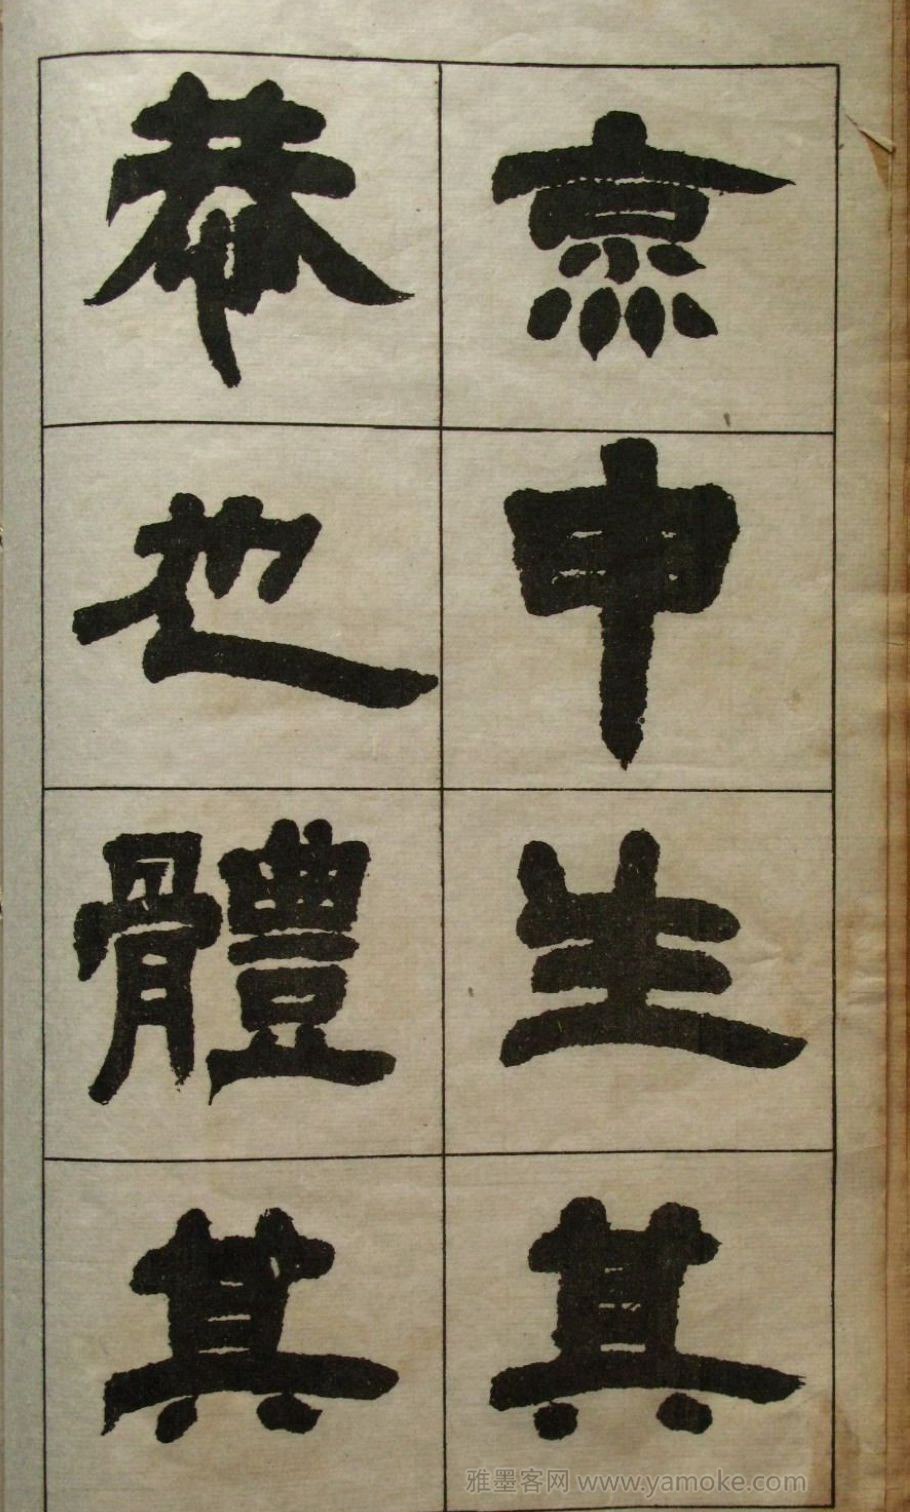 烹申生其
恭也體其
雅墨客网 www.yamoke.com